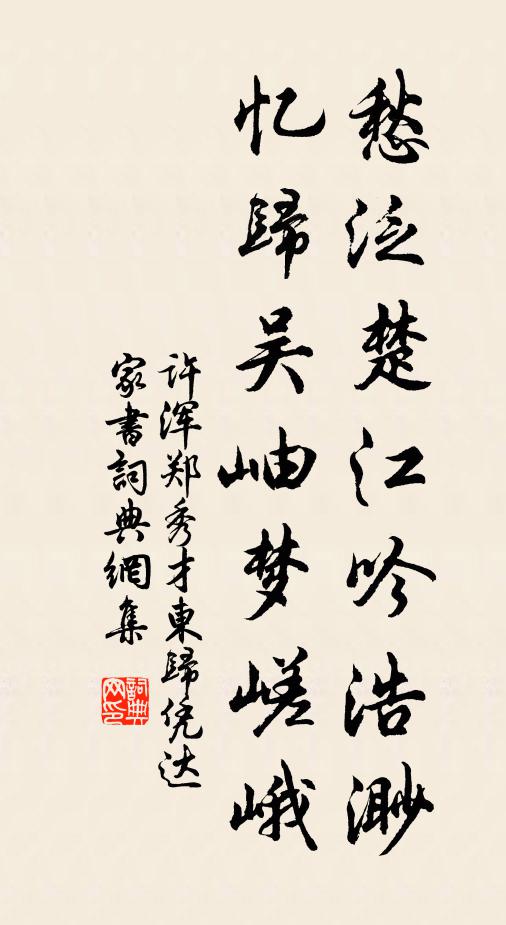 愁泛楚江吟浩渺
忆歸吴岫梦嵯峨
许浑郑秀才東歸凭达
家書詞典網集
詞典
网印